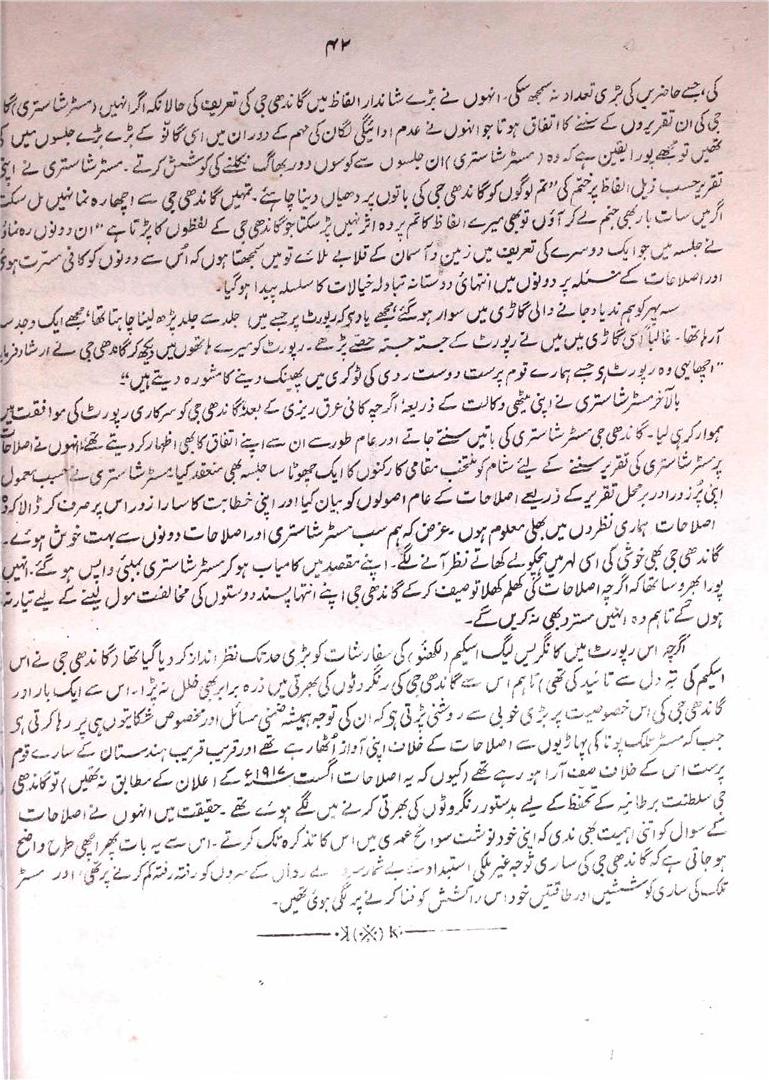 ۴۲
کی، جسے حاضریں کی بڑی تعداد نہ سمجھ سکی۔ انہوں نے بڑے شاندار الفاظ میں گاندھی جی کی تعریف کی حالانکہ اگر انہیں (مسٹر شاستری)
جی کی ان تقریروں کے سننے کا اتفاق ہوتا جو انہوں نے عدم ادائیگی لگان کی مہم کے دوران میں اسی گانوٗ کے بڑے بڑے جلسوں میں
تھیں تو مجھے پورا یقین ہے کہ وہ (مسٹر شاستری) ان جلسوں سے کوسوں دور بھاگ نکلنے کی کوشش کرتے۔ مسٹر شاستری نے اپنی
تقریر حسب ذیل الفاظ پر ختم کی ”تم لوگوں کو گاندھی جی کی باتوں پر دھیان دینا چاہئے۔ تمہیں گاندھی جی سے اچھا رہ نما نہیں مل سکتا
اگر میں سات بار بھی جنم لے کر آؤں تو بھی میرے الفاظ کا تم پر وہ اثر نہیں پڑ سکتا جو گاندھی جی کے لفظوں کا پڑتا ہے“ ان دونوں رہ نماؤں
نے جلسہ میں جو ایک دوسرے کی تعریف میں زمین و آسمان کے قلابے ملائے تو میں سمجھتا ہوں کہ اُس سے دونوں کو کافی مسرت ہوئی
اور اصلاحات کے مسئلہ پر دونوں میں انتہائی دوستانہ تبادلہ خیالات کا سلسلہ پیدا ہو گیا۔
سہ پہر کو ہم ندیاد جانے والی گاڑی میں سوار ہو گئے، مجھے یاد ہی کہ رپورٹ پر جسے میں جلد سے جلد پڑھ لینا چاہتا تھا، مجھے ایک وجد سا
آرہا تھا۔ غالباً اُسی گاڑی میں میں نے رپورٹ کے جستہ جستہ حصّے پڑھے۔ رپورٹ کو میرے ہاتھوں میں دیکھ کر گاندھی جی نے ارشاد فرمایا
”اچھا یہی وہ رپورٹ ہی جسے ہمارے قوم پرست دوست ردی کی ٹوکری میں پھینک دینے کا مشورہ دیتے ہیں“
بالآخر مسٹر شاستری نے اپنی میٹھی وکالت کے ذریعہ اگرچہ کافی عرق ریزی کے بعد، گاندھی جی کو سرکاری رپورٹ کی موافقت میں
ہموار کر ہی لیا۔ گاندھی جی مسٹر شاستری کی باتیں سنتے جاتے اور عام طور سے ان سے اپنے اتفاق کا بھی اظہار کر دیتے تھے، انہوں نے اصلاحات
پر مسٹر شاستری کی تقریر سننے کے لیئے شام کو منتخب مقامی کارکنوں کا ایک چھوٹا سا جلسہ بھی منعقد کیا۔ مسٹر شاستری نے حسب معمول
اپنی پُر زور اور برمحل تقریر کے ذریعے اصلاحات کے عام اصولوں کو بیان کیا اور اپنی خطابت کا سارا زور اس پر صرف کر ڈالا کہ
اصلاحات ہماری نظروں میں بھلی معلوم ہوں۔ غرض کہ ہم سب مسٹر شاستری اور اصلاحات دونوں سے بہت خوش ہوئے۔
گاندھی جی بھی خوشی کی اسی لہر میں ہچکولے کھاتے نظر آنے لگے۔ اپنے مقصد میں کامیاب ہو کر مسٹر شاستری بمبئی واپس ہو گئے۔ انہیں
پورا بھروسا تھا کہ اگرچہ اصلاحات کی کھلم کھلا توصیف کر کے گاندھی جی اپنے انتہا پسند دوستوں کی مخالفت مول لینے کے لیے تیار نہ
ہوں گے تاہم وہ انہیں مسترد بھی نہ کریں گے۔
اگرچہ اس رپورٹ میں کانگریس لیگ اسکیم (لکھنؤ) کی سفارشات کو بڑی حد تک نظر انداز کر دیا گیا تھا (گاندھی جی نے اس
اسکیم کی تہ دل سے تائید کی تھی) تاہم اس سے گاندھی جی کی رنگروٹوں کی بھرتی میں ذرہ برابر بھی خلل نہ پڑا۔ اس سے ایک بار اور
گاندھی جی کی اس خصوصیت پر بڑی خوبی سے روشنی پڑتی ہی کہ ان کی توجہ ہمیشہ ضمنی مسائل اور مخصوص شکایتوں ہی پر رہا کرتی ہی
جب کہ مسٹر تلک پونا کی پہاڑیوں سے اصلاحات کے خلاف اپنی آواز اُٹھا رہے تھے اور قریب قریب ہندستان کے سارے قوم
پرست اس کے خلاف صف آرا ہو رہے تھے (کیوں کہ یہ اصلاحات اگست ۱۹۱۷ء کے اعلان کے مطابق نہ تھیں) تو گاندھی
جی سلطنت برطانیہ کے تحفظ کے لیے بدستور رنگروٹوں کی بھرتی کرنے میں لگے ہوئے تھے۔ حقیقت میں انہوں نے اصلاحات
کے سوال کو اتنی اہمیت بھی نہ دی کہ اپنی خود نوشت سوانح عمری میں اس کا تذکرہ تک کرتے۔ اس سے یہ بات پھر اچھی طرح واضح
ہو جاتی ہے کہ گاندھی جی کی ساری توجہ غیر ملکی استبداد کے بے شمار کے سروں کو رفتہ رفتہ کم کرنے پر تھی، اور مسٹر
تلک کی ساری کوششیں اور طاقتیں خود اس راکشش کو فنا کرنے پر لگی ہوئی تھیں۔